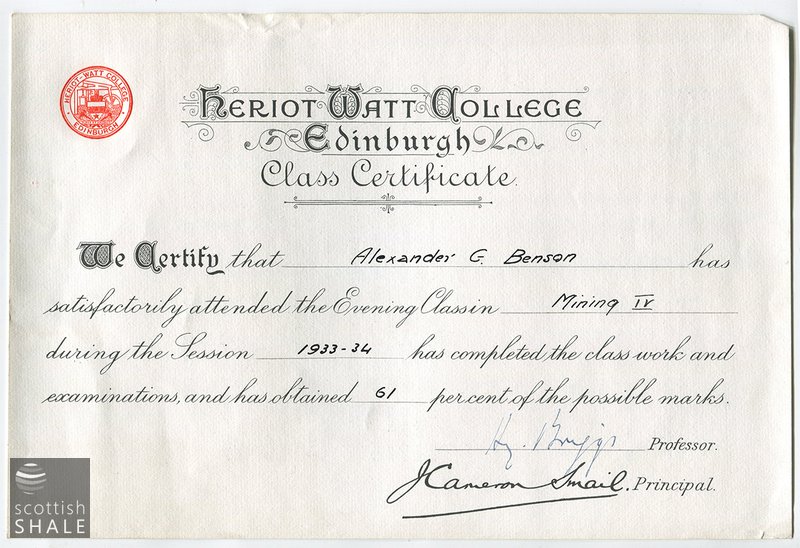 HERIOT-WATT COLLEGE
EDINBURGH
HERIOT WATT COLLEGE
Edinburgh
Class Certificate.
We Certify that Alexander G. Benson has
satisfactorily attended the Evening Class in Mining IV
during the Session 1933-34 has completed the class work and
examinations, and has obtained 61 per cent of the possible marks.
Hy. Briggs Professor.
J Cameron Smail. Principal.
scottish
SHALE